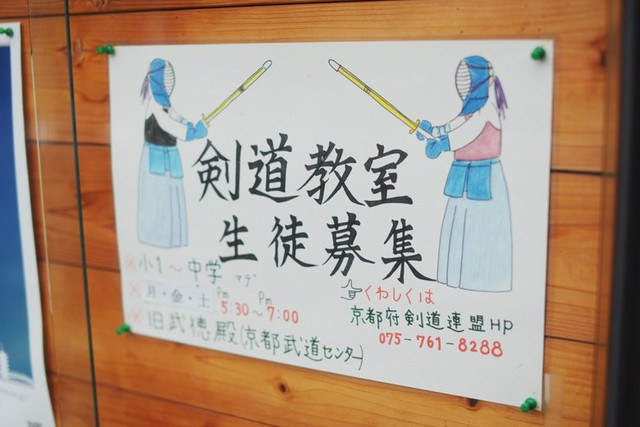 剣道教室
生徒募集
※小1～中学マデ
※月・金・土 Pm5:30～Pm7:00
※旧武徳殿(京都武道センター)
☞くわしくは
京都府剣道連盟HP
075-761-8288